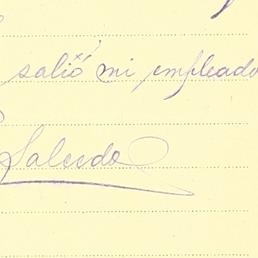 salió mi empleado
Salcedo